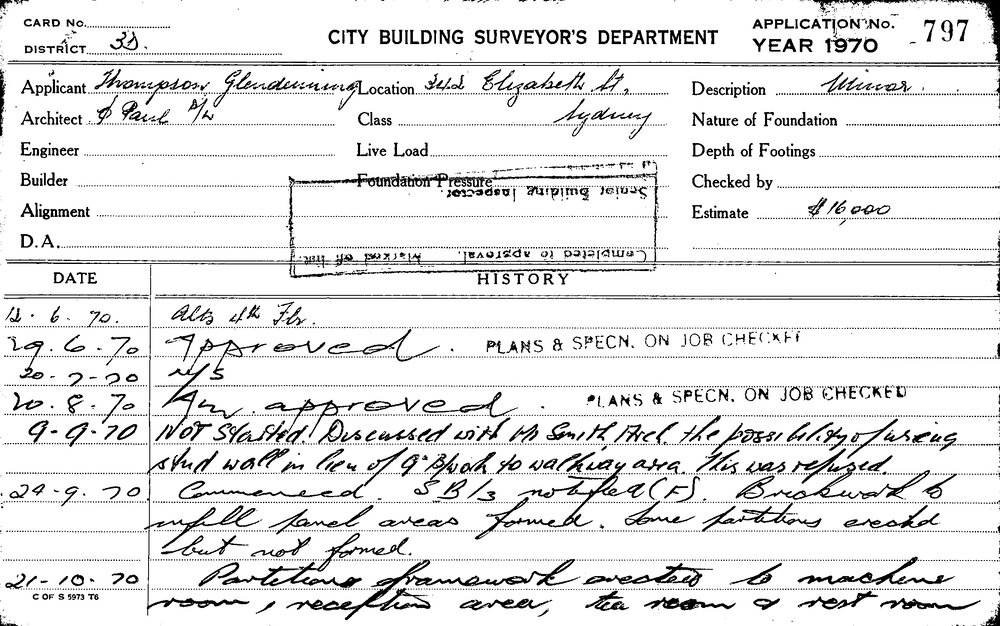 CARD No.
DISTRICT 3D.
CITY BUILDING SURVEYOR'S DEPARTMENT
APPLICATION No. 797
YEAR 1970
Applicant Thompson Glendinning
Location 342 Elizabeth St,
Description Minor.
Architect & Paul P/L
Class Sydney
Nature of Foundation
Engineer
Live Load
Depth of Footings
Builder
Foundation Pressure
Checked by
Senior Building Inspector.
Alignment
Estimate $16,000
D.A.
Completed to approval. Marked off list.
DATE HISTORY
12.6.70. Alts 4th Flr.
29.6.70 Approved. PLANS & SPECN. ON JOB CHECKED
20-7-70 N/S
20.8.70 Am. approved. PLANS & SPECN. ON JOB CHECKED
9-9-70 Not Started. Discussed with Mr Smith Arch. the possibility of using
stud wall in lieu of 9" B/work to walkway area. This was refused.
24-9.70 Commenced. SB/3 notified (F). Brickwork to
infill panel areas formed. Some partitions erected
but not formed.
21-10-70 Partitions framework erected to machine
room, reception area, tea room & rest room
C OF S 5973 T6